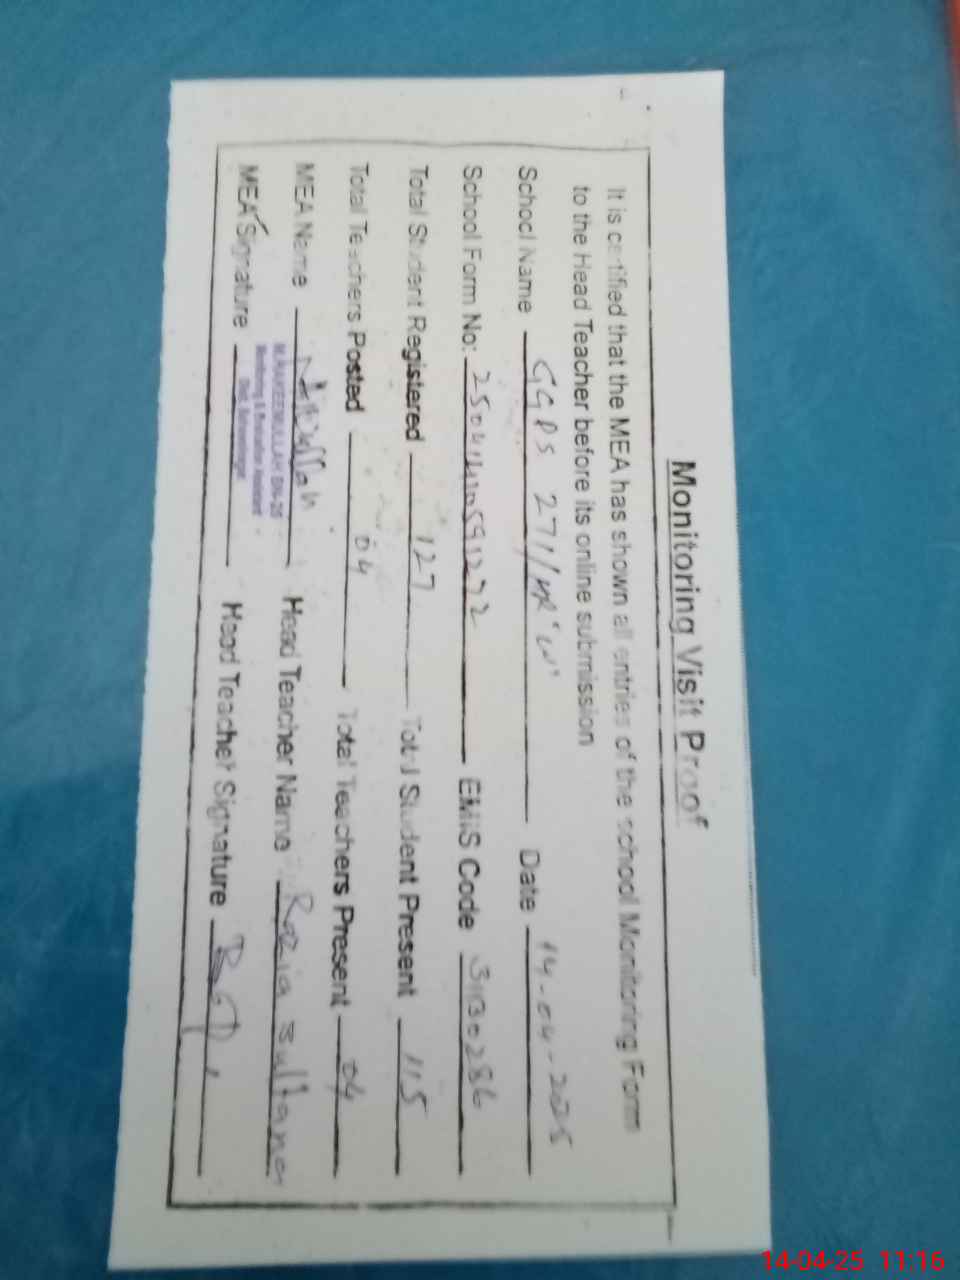 Monitoring Visit Proof
It is certified that the MEA has shown all entries of the school Monitoring Form
to the Head Teacher before its online submission
School Name GGPS 271/HR "W" Date 14-04-2025
School Form No: EMIS Code 31130286
Total Student Registered 127 Total Student Present 115
Total Teachers Posted 04 Total Teachers Present 04
MEA Name Head Teacher Name Razia Sultana
MEA Signature Head Teacher Signature
14-04-25 11:16